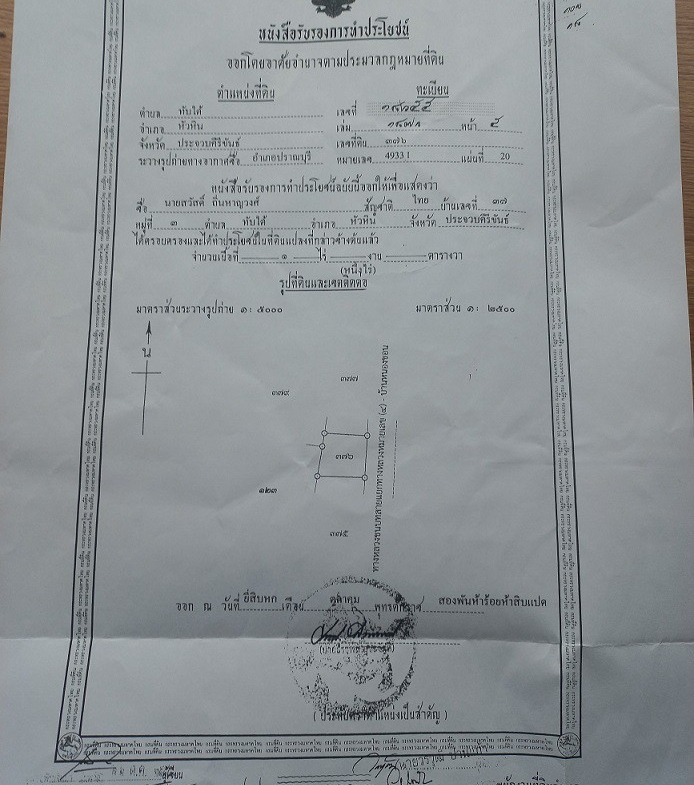 หนังสือรับรองการทำประโยชน์
ออกโดยอาศัยอำนาจตามประมวลกฎหมายที่ดิน
ตำแหน่งที่ดิน ทะเบียน
ตำบล ทับใต้ เลขที่
อำเภอ หัวหิน เล่ม หน้า ๕
จังหวัด ประจวบคีรีขันธ์ เลขที่ดิน ๓๗๖
ระวางรูปถ่ายทางอากาศชื่อ อำเภอปราณบุรี หมายเลข 4933 I แผ่นที่ 20
หนังสือรับรองการทำประโยชน์ฉบับนี้ออกให้เพื่อแสดงว่า
ชื่อ นายสวัสดิ์ ถิ่นหาญวงศ์ สัญชาติ ไทย บ้านเลขที่ ๓๗
หมู่ที่ ๓ ตำบล ทับใต้ อำเภอ หัวหิน จังหวัด ประจวบคีรีขันธ์
ได้ครอบครองและได้ทำประโยชน์ในที่ดินแปลงที่กล่าวข้างต้นแล้ว
จำนวนเนื้อที่ ๑ ไร่ งาน ตารางวา
(หนึ่งไร่)
รูปที่ดินและเขตติดต่อ
มาตราส่วนระวางรูปถ่าย ๑: ๕๐๐๐ มาตราส่วน ๑: ๒๕๐๐
น
๓๗๗
๓๗๙
๓๗๖
๑๒๓
๓๗๕
ออก ณ วันที่ ยี่สิบหก เดือน ตุลาคม พุทธศักราช สองพันห้าร้อยห้าสิบแปด
( ประทับตราตำแหน่งเป็นสำคัญ )